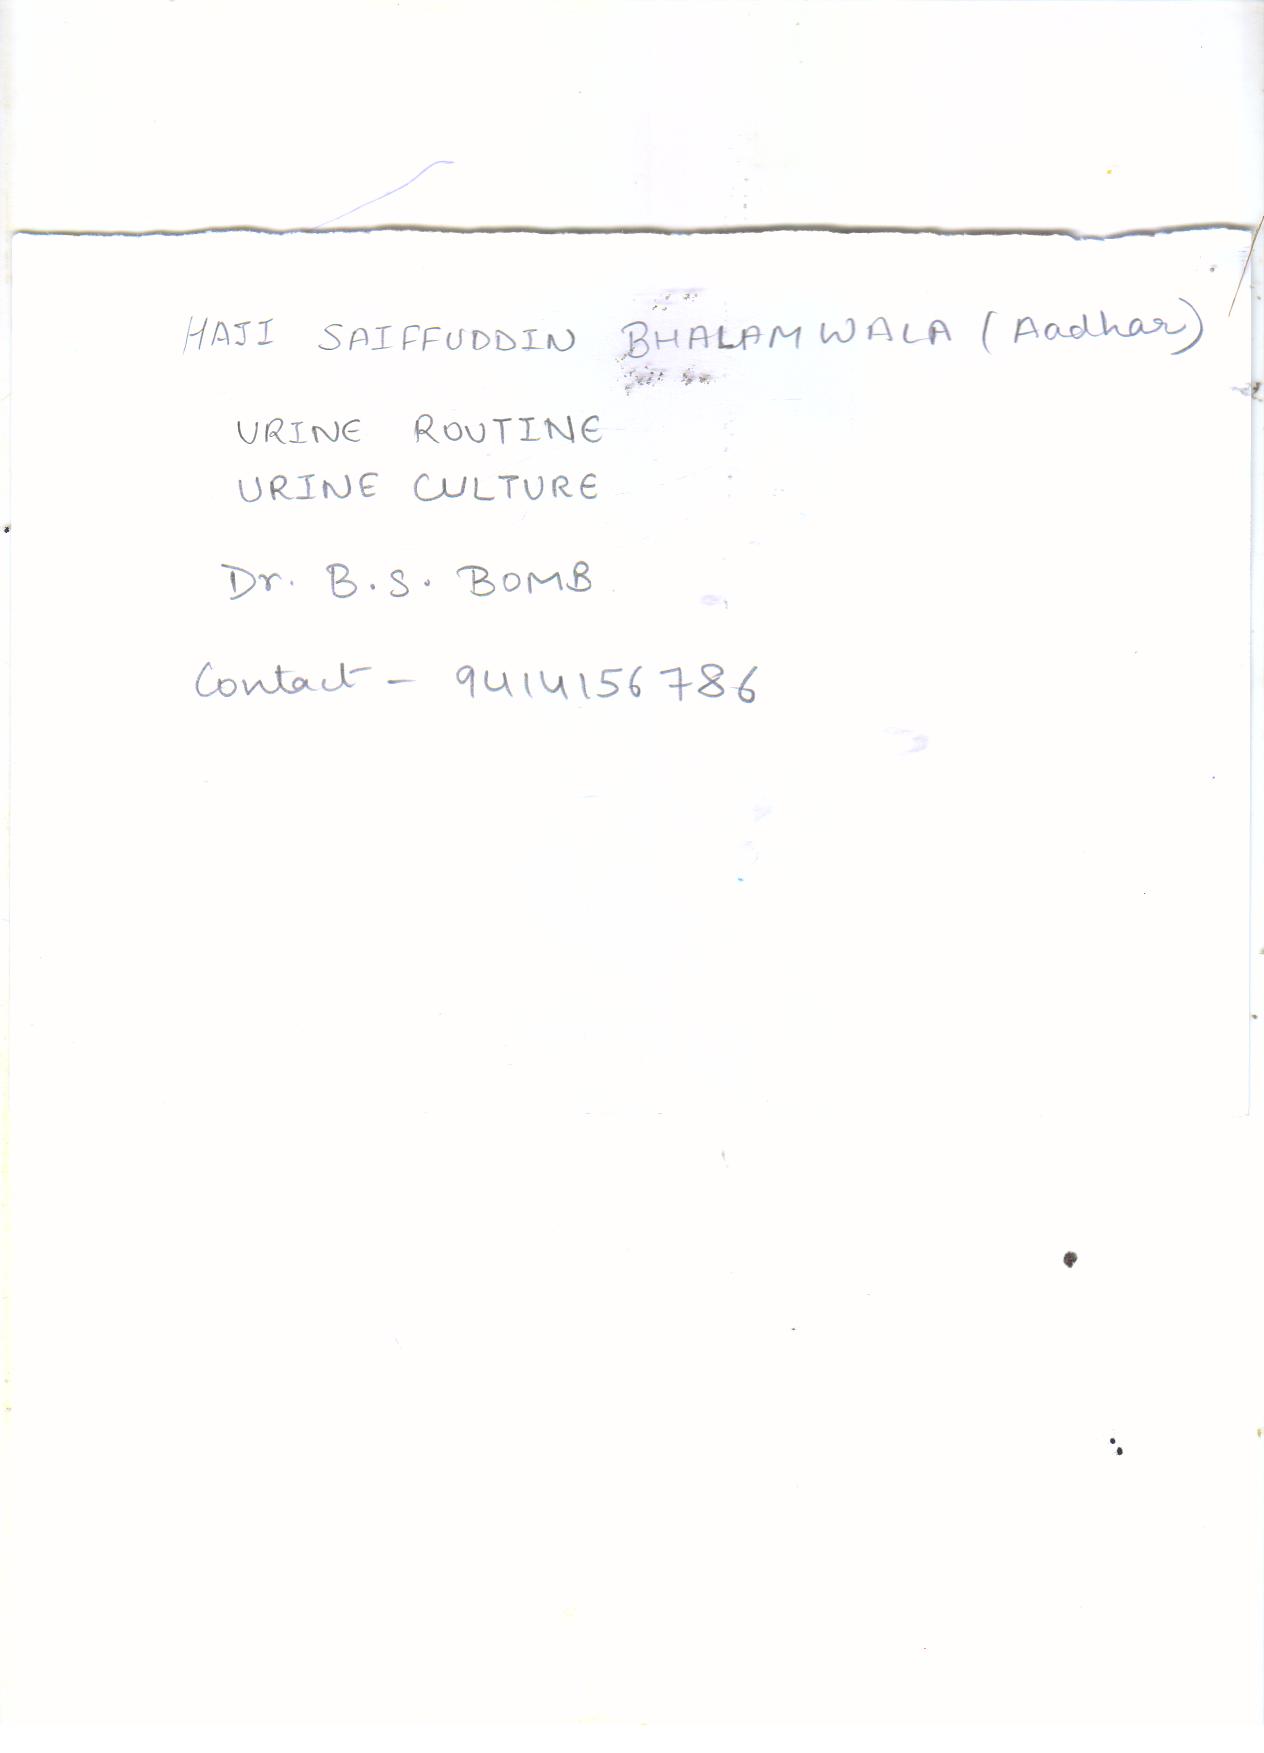 HAJI SAIFFUDDIN BHALAMWALA (Aadhar)
URINE ROUTINE
URINE CULTURE
Dr. B.S. BOMB
Contact - 9414156786